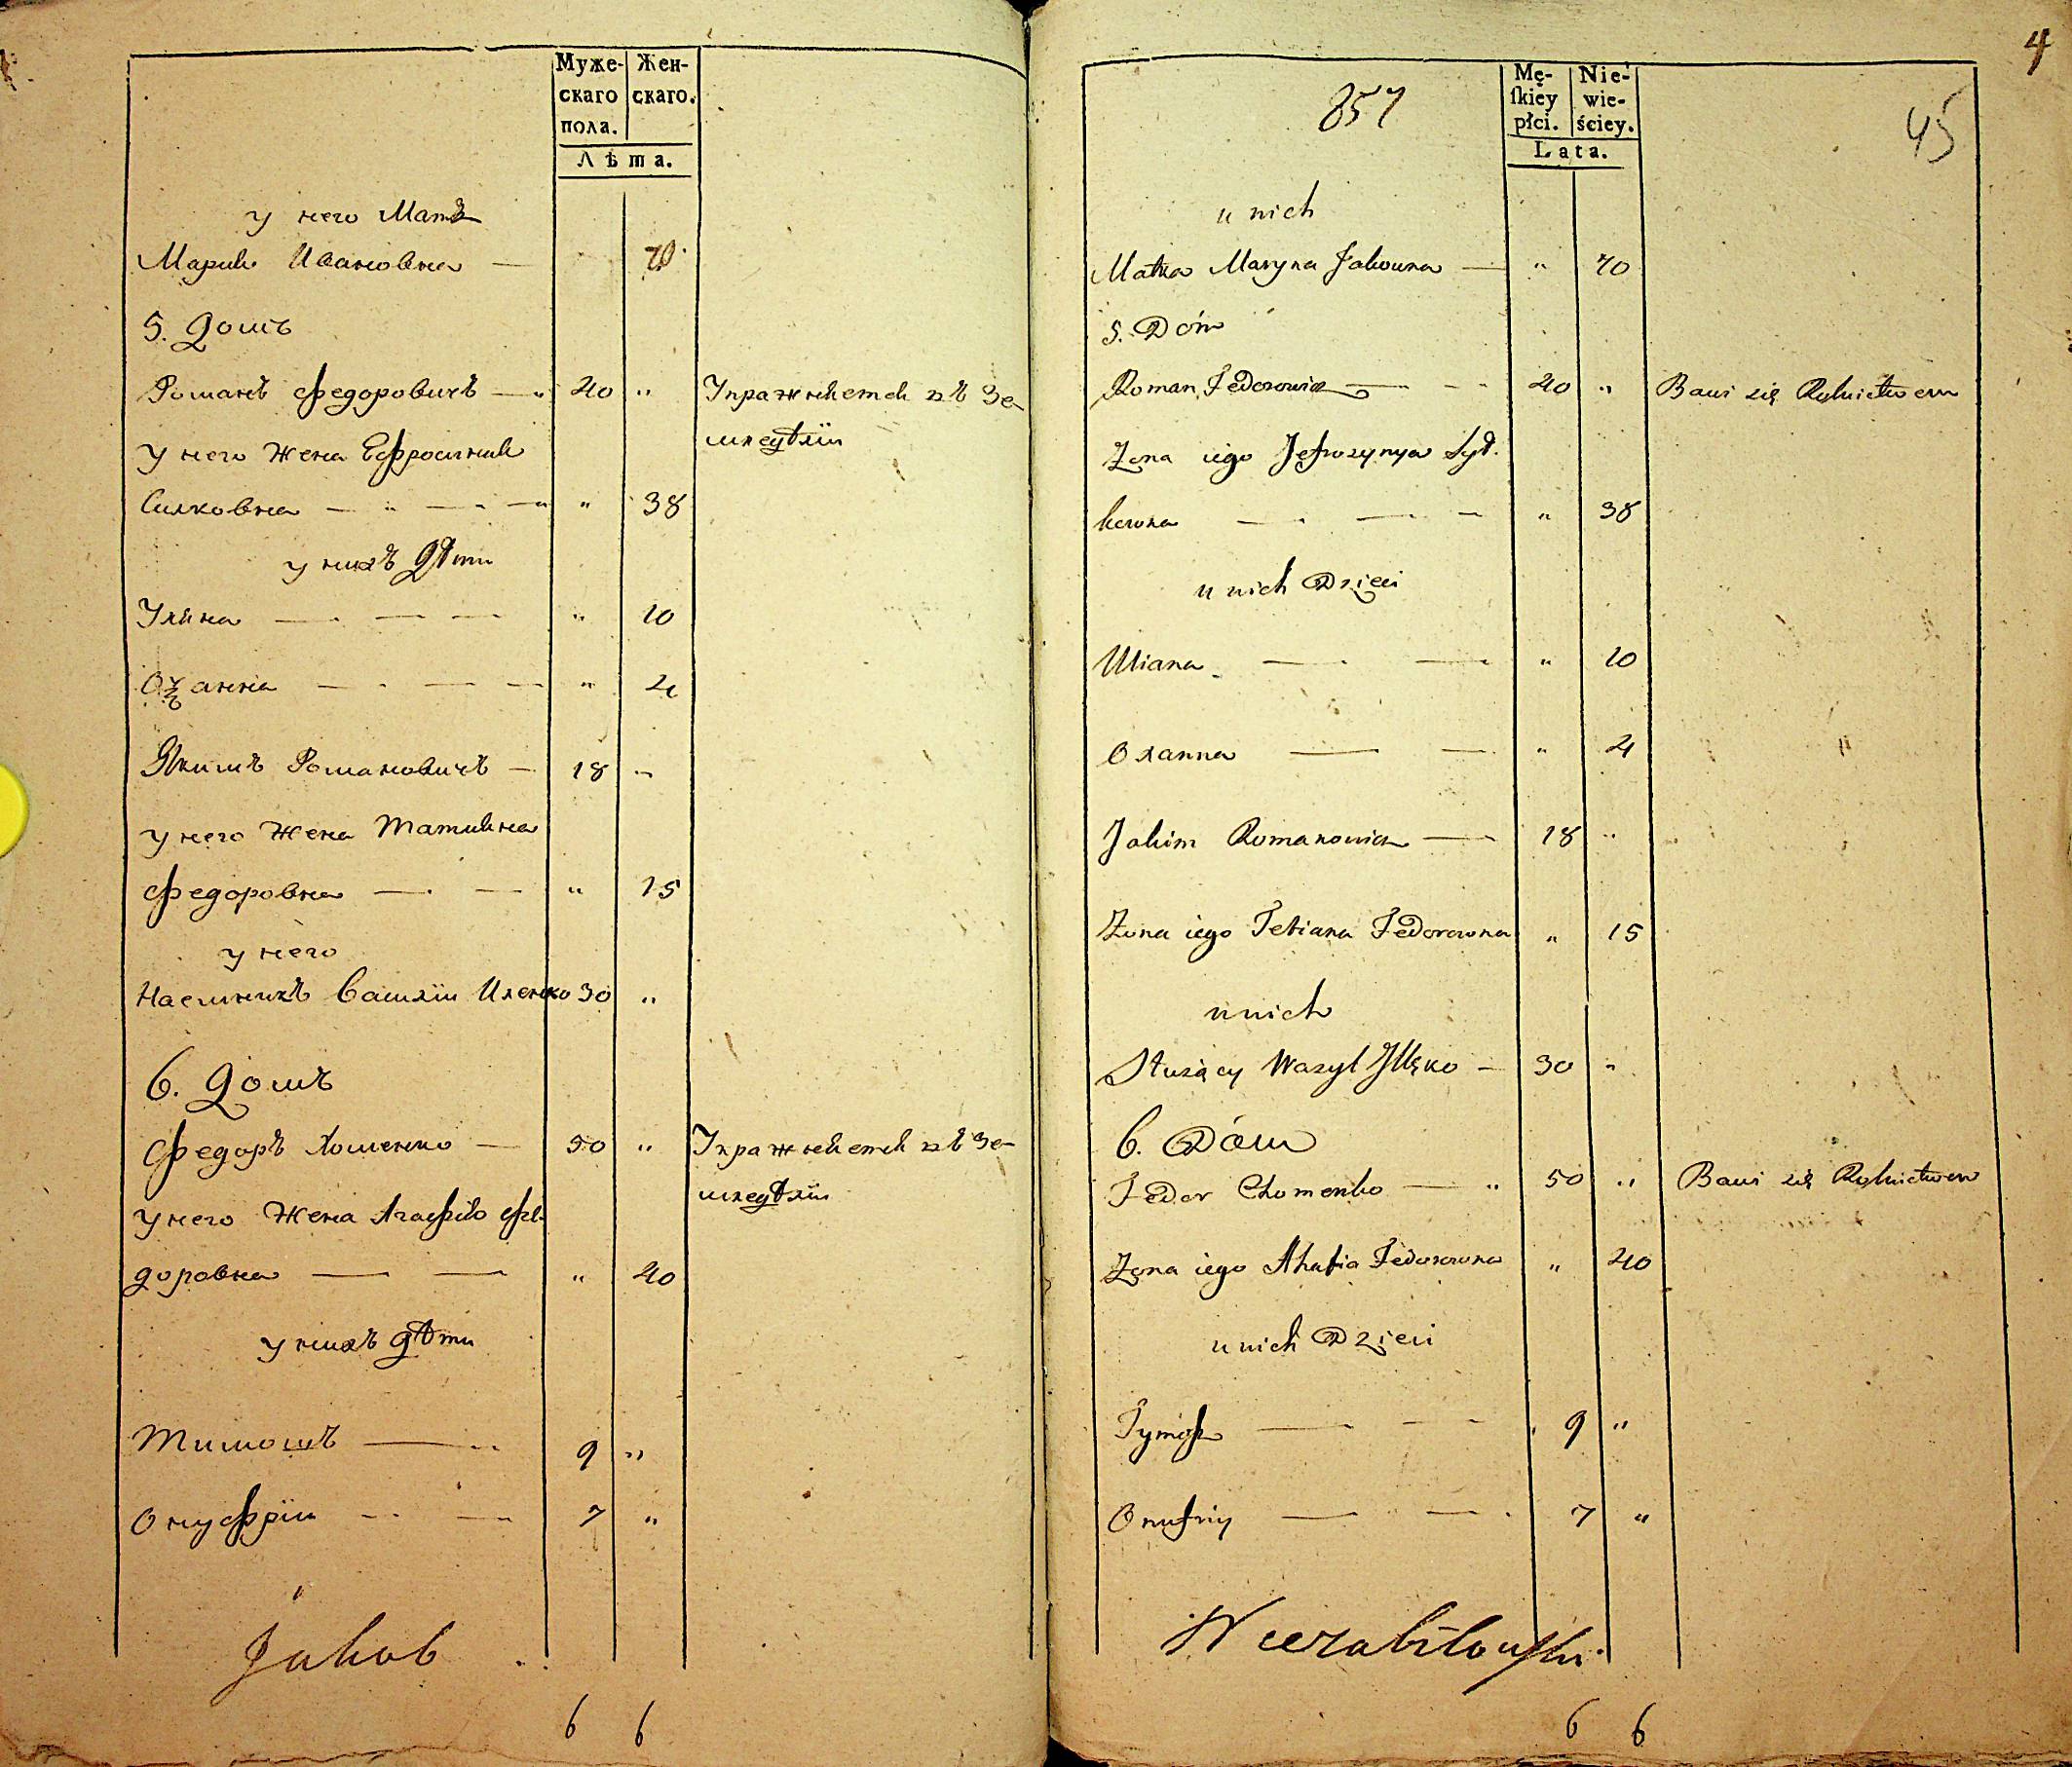 Муже-
скаго
пола.
Жен-
скаго.
Лѣта.
у него Мать
Мария Ивановна — 70
5. Домъ
Романъ Федоровичъ — " 40 " Упражняется въ Зе-
мледѣлїи
у него Жена Ефросиния
Силковна — " — " — " " 38
у нихъ Дѣти
Уляна — — — " 10
Оѯанна — — — " 4
Якимъ Романовичъ — 18 "
у него Жена Татияна
Федоровна — — " 15
у него
Наемникъ Василїи Иленко 30 "
6. Домъ
Федоръ Хоменко — 50 " Упражняется въ Зе-
мледѣлїи
у него Жена Агафия Фе-
доровна — — " 40
у нихъ дѣти
Тимошъ — 9 "
Онуфрїи — — 7 "
Jakob
6 6
4
857
45
Mę-
ſkiey
płci.
Nie-
wie-
ściey.
Lata.
u nich
Matka Maryna Jakowna — " 70
5. Dóm
Roman Fedorowicz — — 40 " Bawi się Rolnictwem
Żona iego Jefrozynya Sył-
kowna — — — " 38
u nich Dzieci
Uliana — — " 10
Oxanna — — " 4
Jakim Romanowicz — 18 "
Żona iego Tetiana Fedorowna " 15
u nich
Służący Wasyl Jlleko — 30 "
6. Dóm
Fedor Chomenko — " 50 " Bawi się Rolnictwem
Żona iego Ahafia Fedorowna " 40
u nich Dzieci
Tymosz — — 9 "
Onufriy — — 7 "
6 6